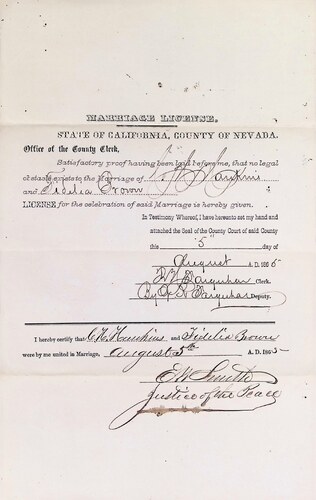 MARRIAGE LICENSE.
STATE OF CALIFORNIA, COUNTY OF NEVADA.
Office of the County Clerk,
Satisfactory proof having been laid before me, that no legal
obstacle exists to the Marriage of Hawkins
and Fidelia Brown
LICENSE for the celebration of said Marriage is hereby given.
In Testimony Whereof, I have hereunto set my hand and
attached the Seal of the County Court of said County
this "5" day of
August A.D. 1865
Farquhar Clerk.
By Farquhar Deputy.
I hereby certify that Hawkins and Fidelia Brown
were by me united in Marriage, August 5th A.D. 1865-
E W Smith
Justice of the Peace